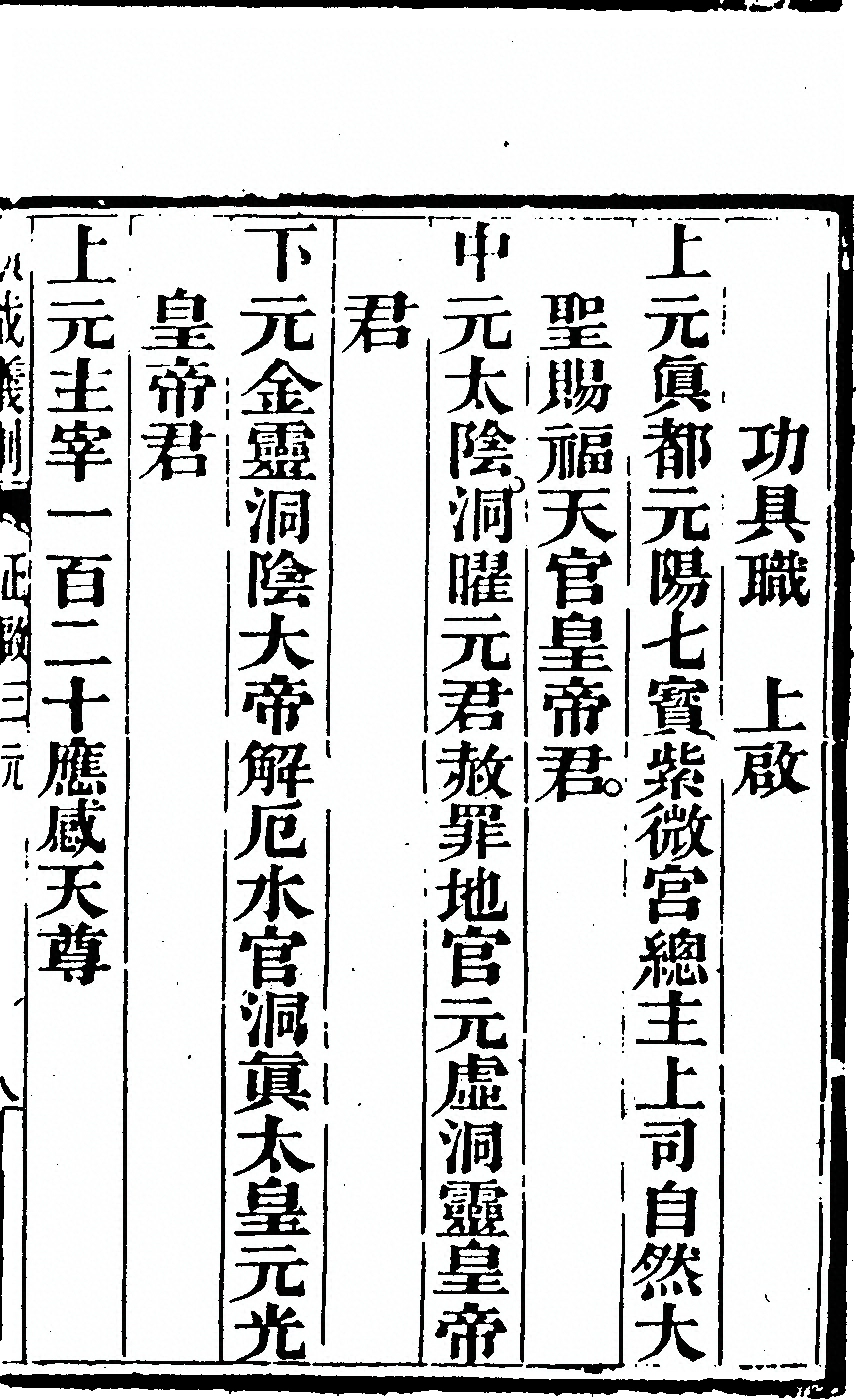 功具職　上啟
上元眞都元陽七寳紫微宮總主上司自然大
聖賜福天官皇帝君。
中元太陰。洞曜元君赦罪地官元虛洞靈皇帝
君
下元金靈洞陰大帝解厄水官洞眞太皇元光
皇帝君
上元主宰一百二十應感天尊
正啟三元